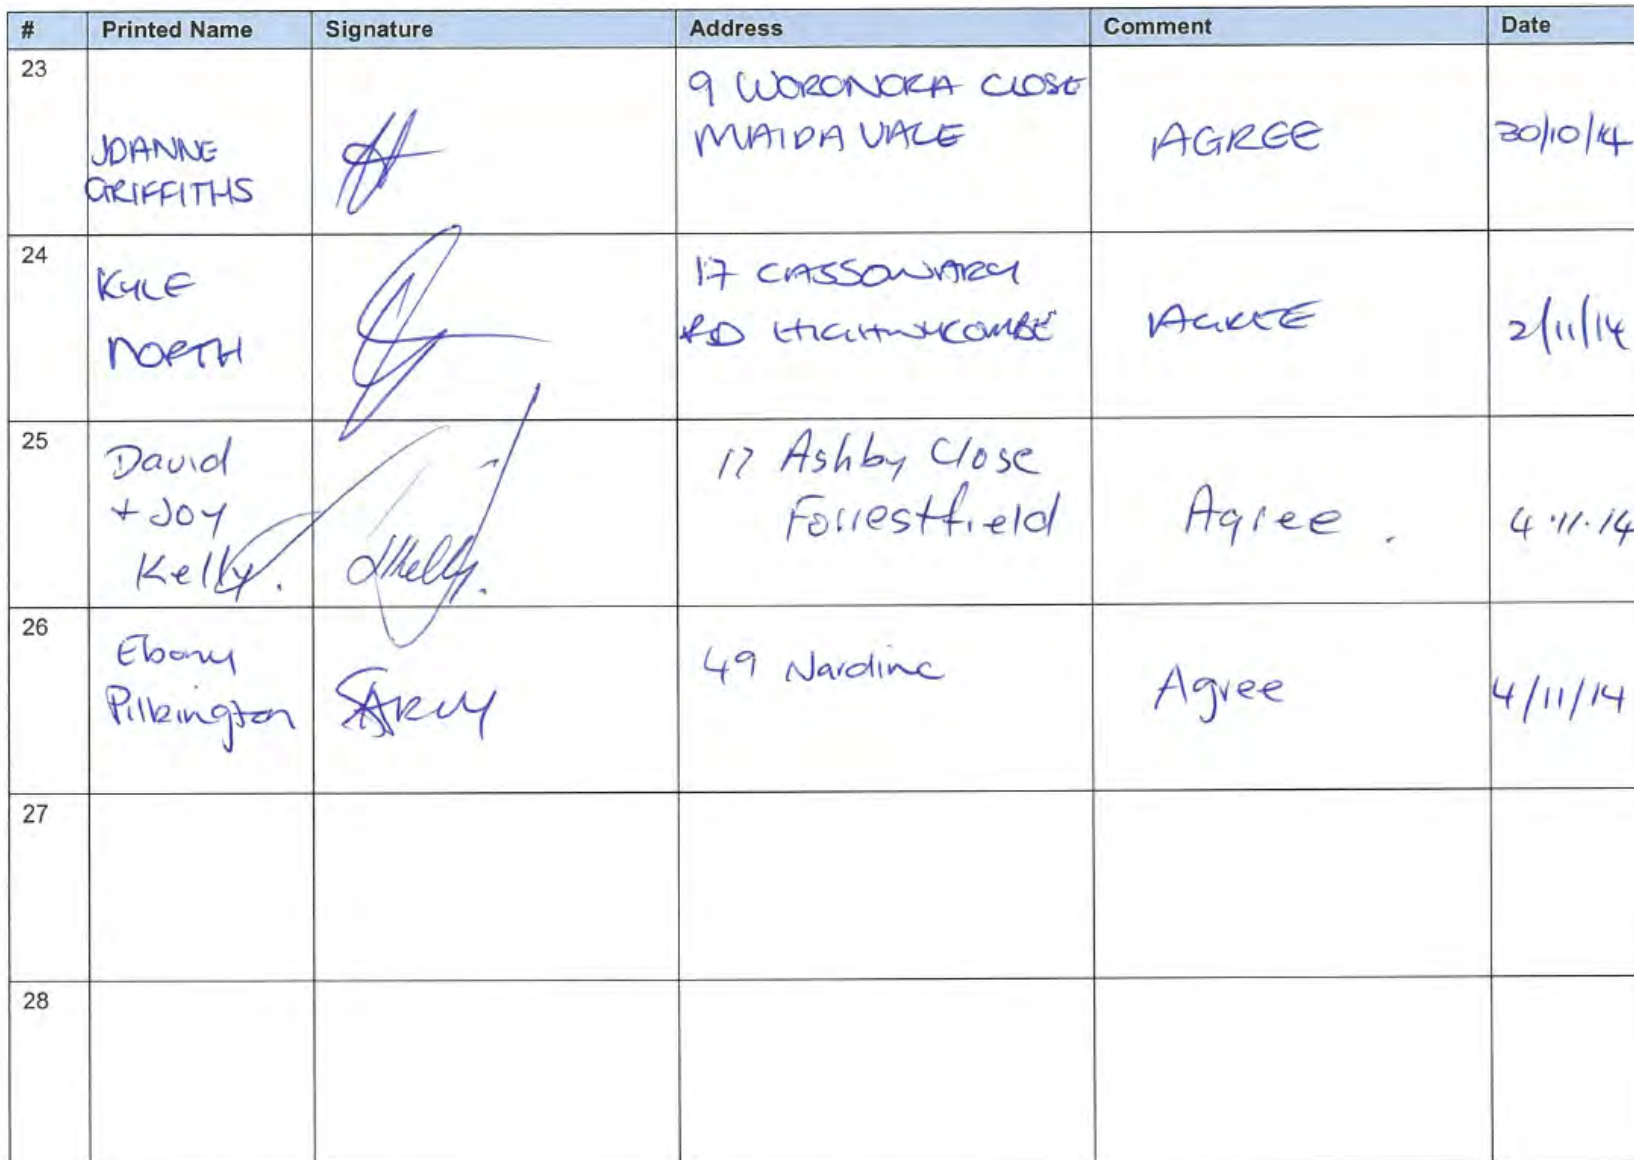 # Printed Name Signature Address Comment Date
23
JOANNE
GRIFFITHS
9 WORONORA CLOSE
MAIDA VALE
AGREE
30/10/14
24
KYLE
NORTH
17 CASSOWARY
RD HIGHWYCOMBE
AGREE
2/11/14
25
David
+ Joy
Kelly.
JKelly.
17 Ashby Close
Forrestfield
Agree .
4.11.14
26
Ebony
Pilkington
49 Nardine
Agree
4/11/14
27
28